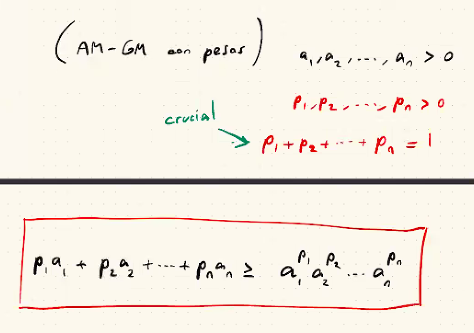 (AM-GM con pesos)
a₁, a₂, ..., aₙ > 0
p₁, p₂, ..., pₙ > 0
crucial
p₁ + p₂ + ... + pₙ = 1
p₁a₁ + p₂a₂ + ... + pₙaₙ ≥ a₁^p₁ a₂^p₂ ... aₙ^pₙ